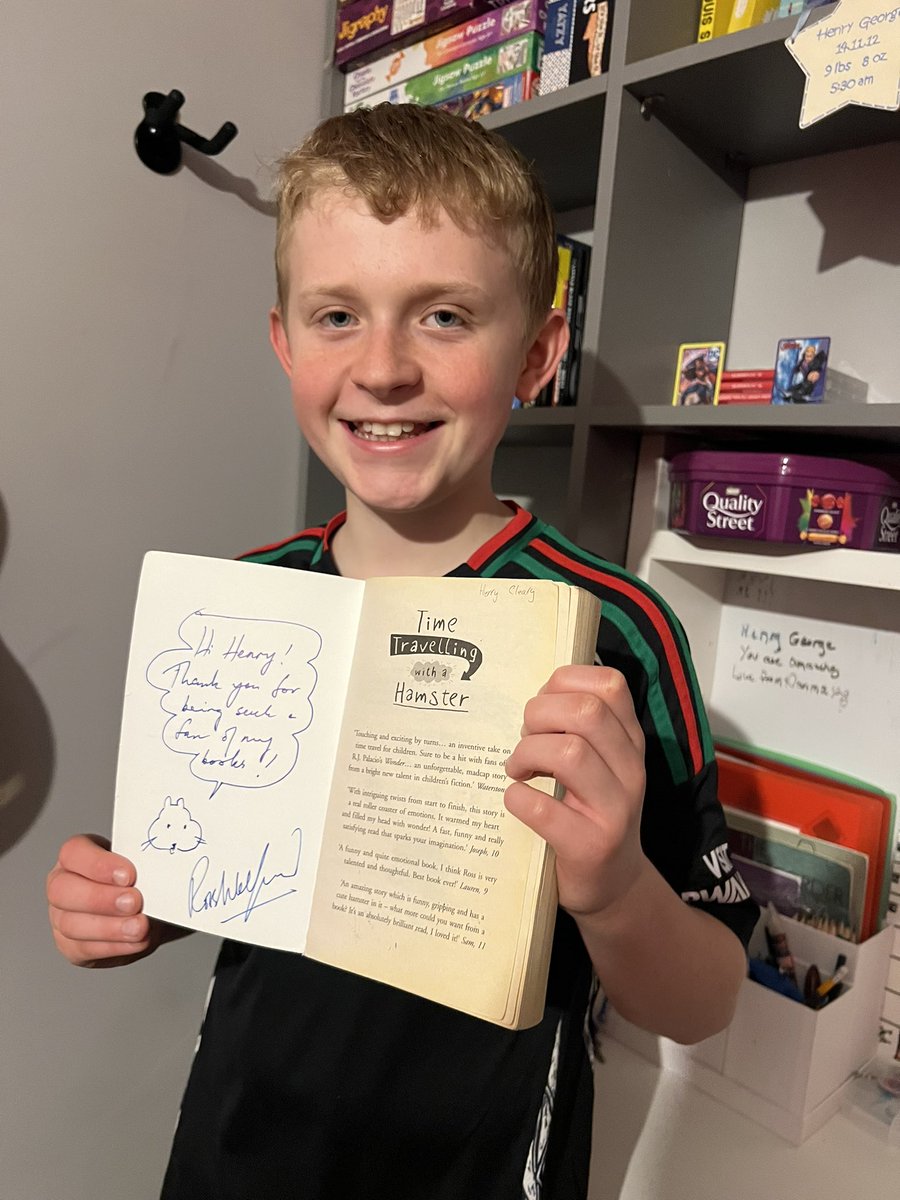 Jigraphy
Jigsaw Puzzle
Jigsaw Puzzle
YATZY
LOUIS S
Henry George
14.11.12
9 lbs 8 oz
5:30 am
Quality
Street
Henry George
You are amazing
Love from
VISIT
RWAN
Hi Henry!
Thank you for
being such a
fan of my
books!
Ross Welford
Henry Cleary
Time
Travelling
with a
Hamster
'Touching and exciting by turns… an inventive take on
time travel for children. Sure to be a hit with fans of
R.J. Palacio's Wonder… an unforgettable, madcap story
from a bright new talent in children's fiction.' Waterston
'With intriguing twists from start to finish, this story is
a real roller coaster of emotions. It warmed my heart
and filled my head with wonder! A fast, funny and really
satisfying read that sparks your imagination.' Joseph, 10
'A funny and quite emotional book. I think Ross is very
talented and thoughtful. Best book ever!' Lauren, 9
'An amazing story which is funny, gripping and has a
cute hamster in it – what more could you want from a
book? It's an absolutely brilliant read, I loved it!' Sam, 11